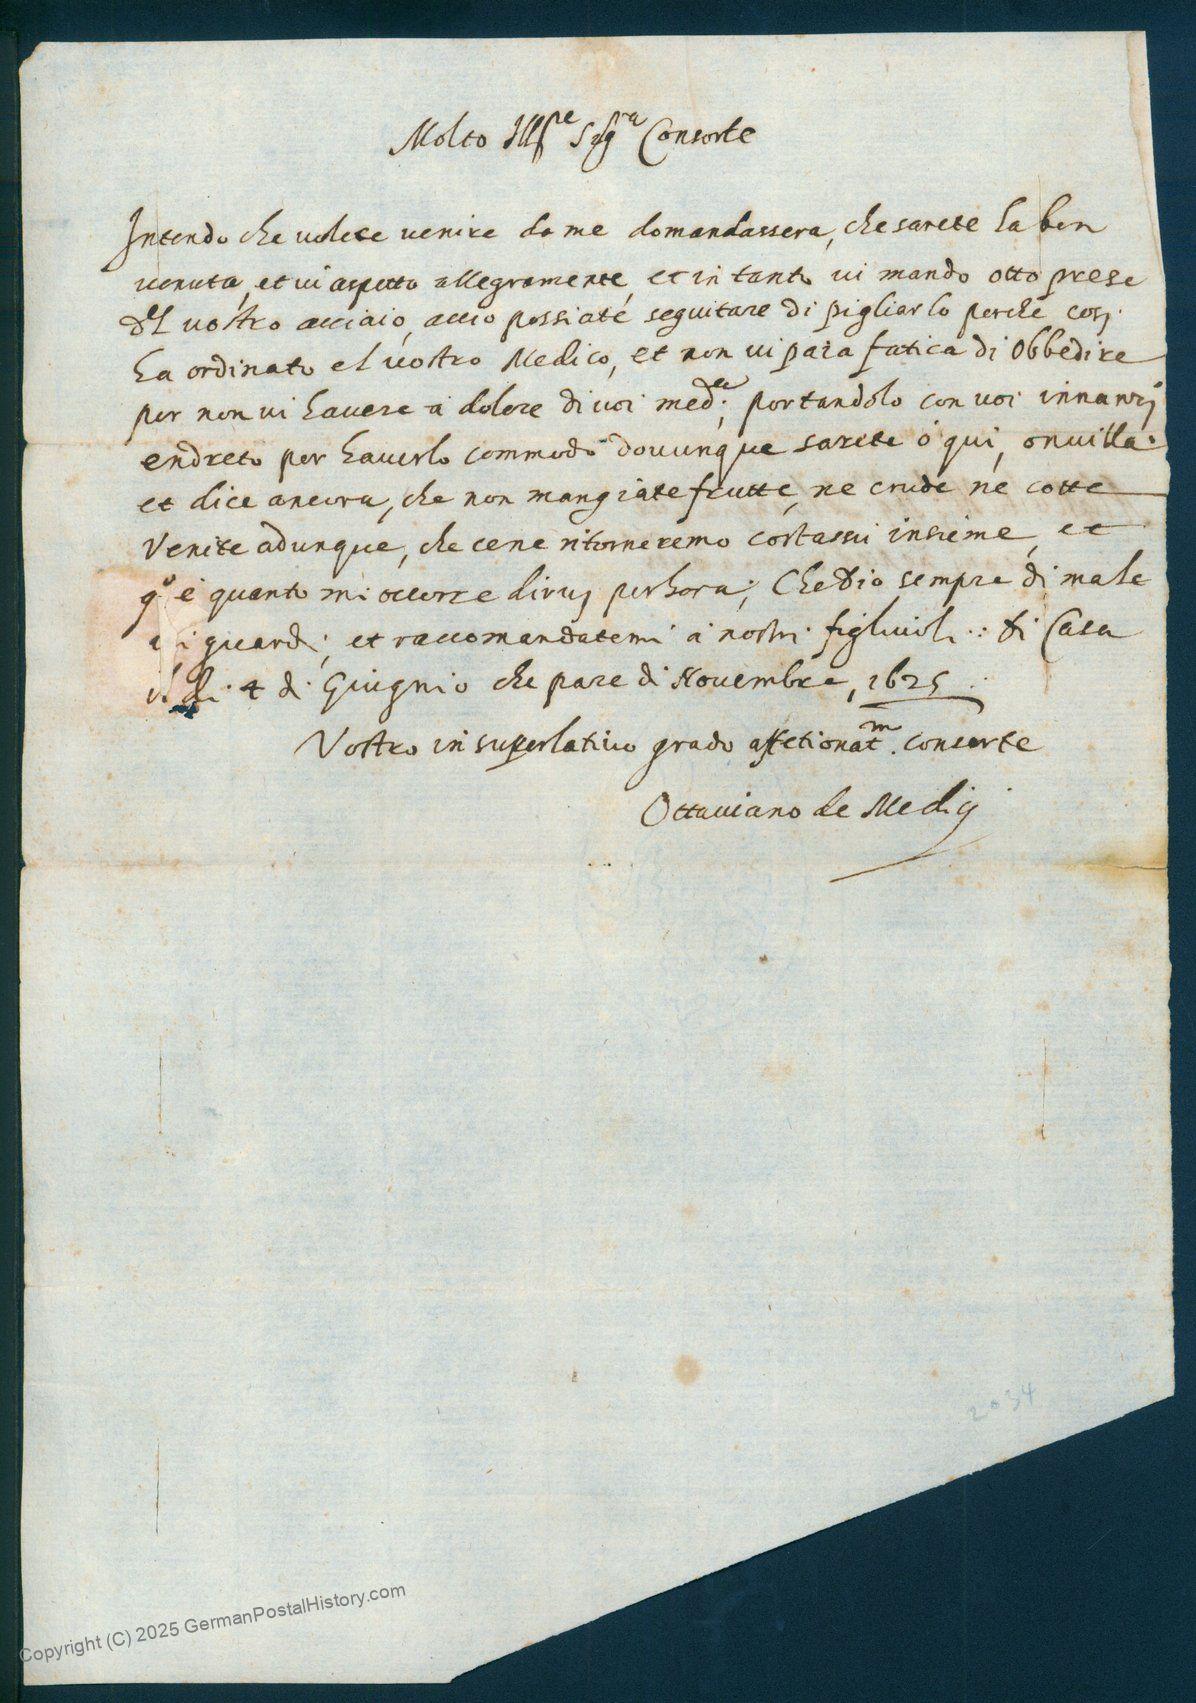 Molto Ill.re Sig.ra Consorte
Intendo che volete venire da me domandassera, che sarete la ben
venuta, et vi aspetto allegramente, et in tanto vi mando otto prese
del vostro acciaio, accio possiate seguitare di pigliarlo perche cosi
ha ordinato el vostro Medico, et non vi paia fatica di Obbedire
per non vi havere a dolere di voi med.ma; portandolo con voi innanzi
endreto per haverlo commodo dovunque sarete ó qui, o in villa.
et dice ancora, che non mangiate frutte, ne crude ne cotte
Venite adunque, che cene ritorneremo costassú insieme, et
q.o é quanto mi occorre dirvi per hora; Che Dio sempre di male
vi guardi; et raccomandatemi a nostri figliuoli: di Casa
il di 4 di Giugnio che pare di Novembre, 1625
Vostro in superlativo grado affetionat.mo consorte
Ottaviano de Medici
2034
Copyright (C) 2025 GermanPostalHistory.com